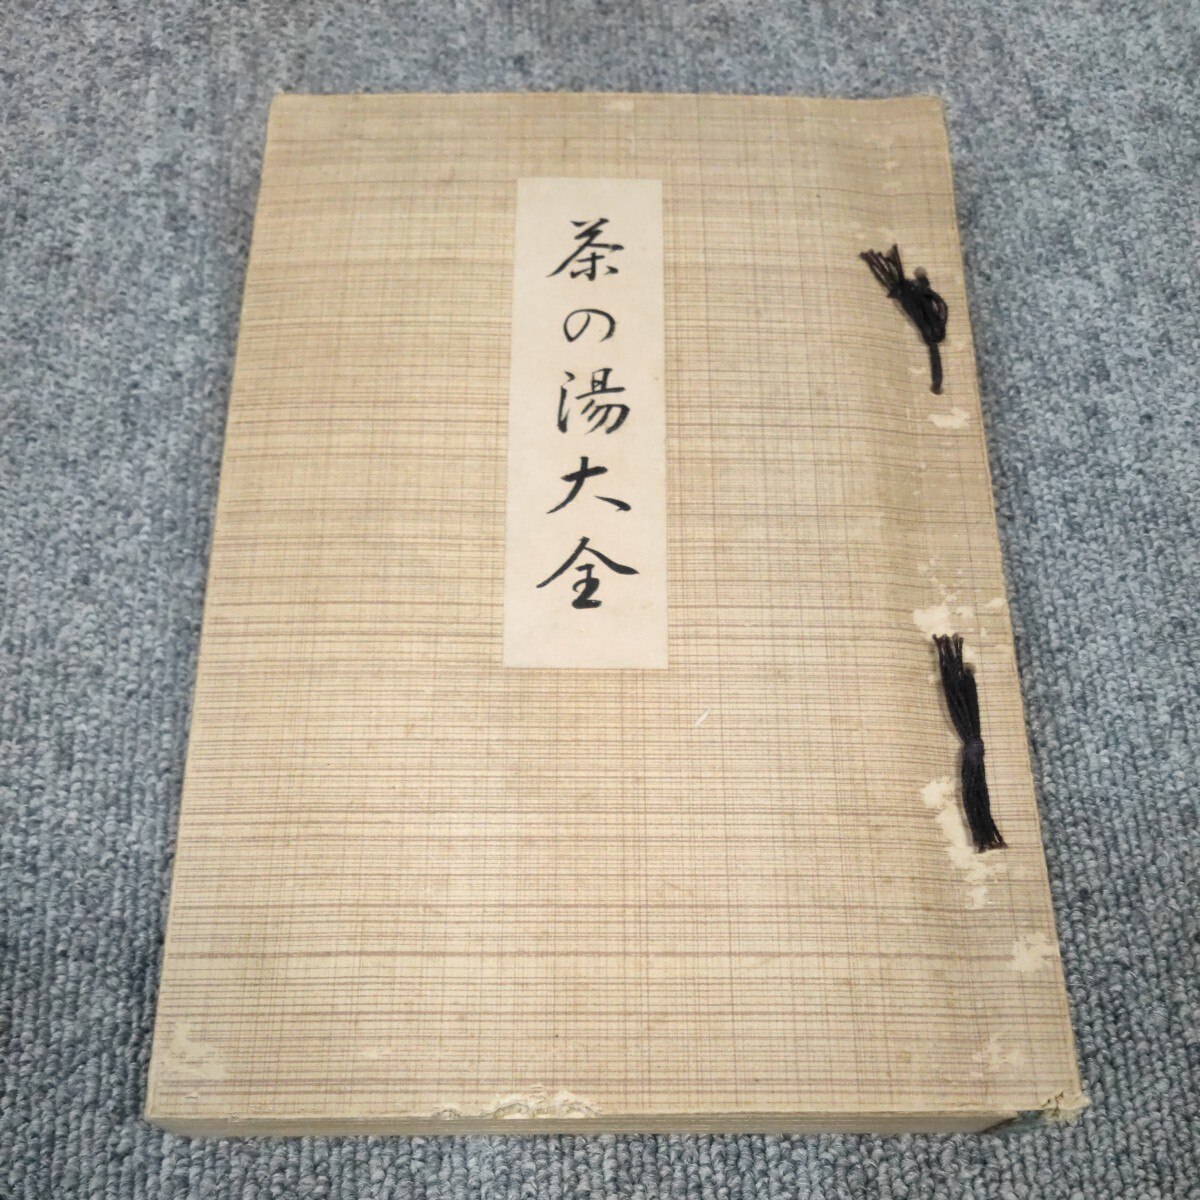 茶の湯大全